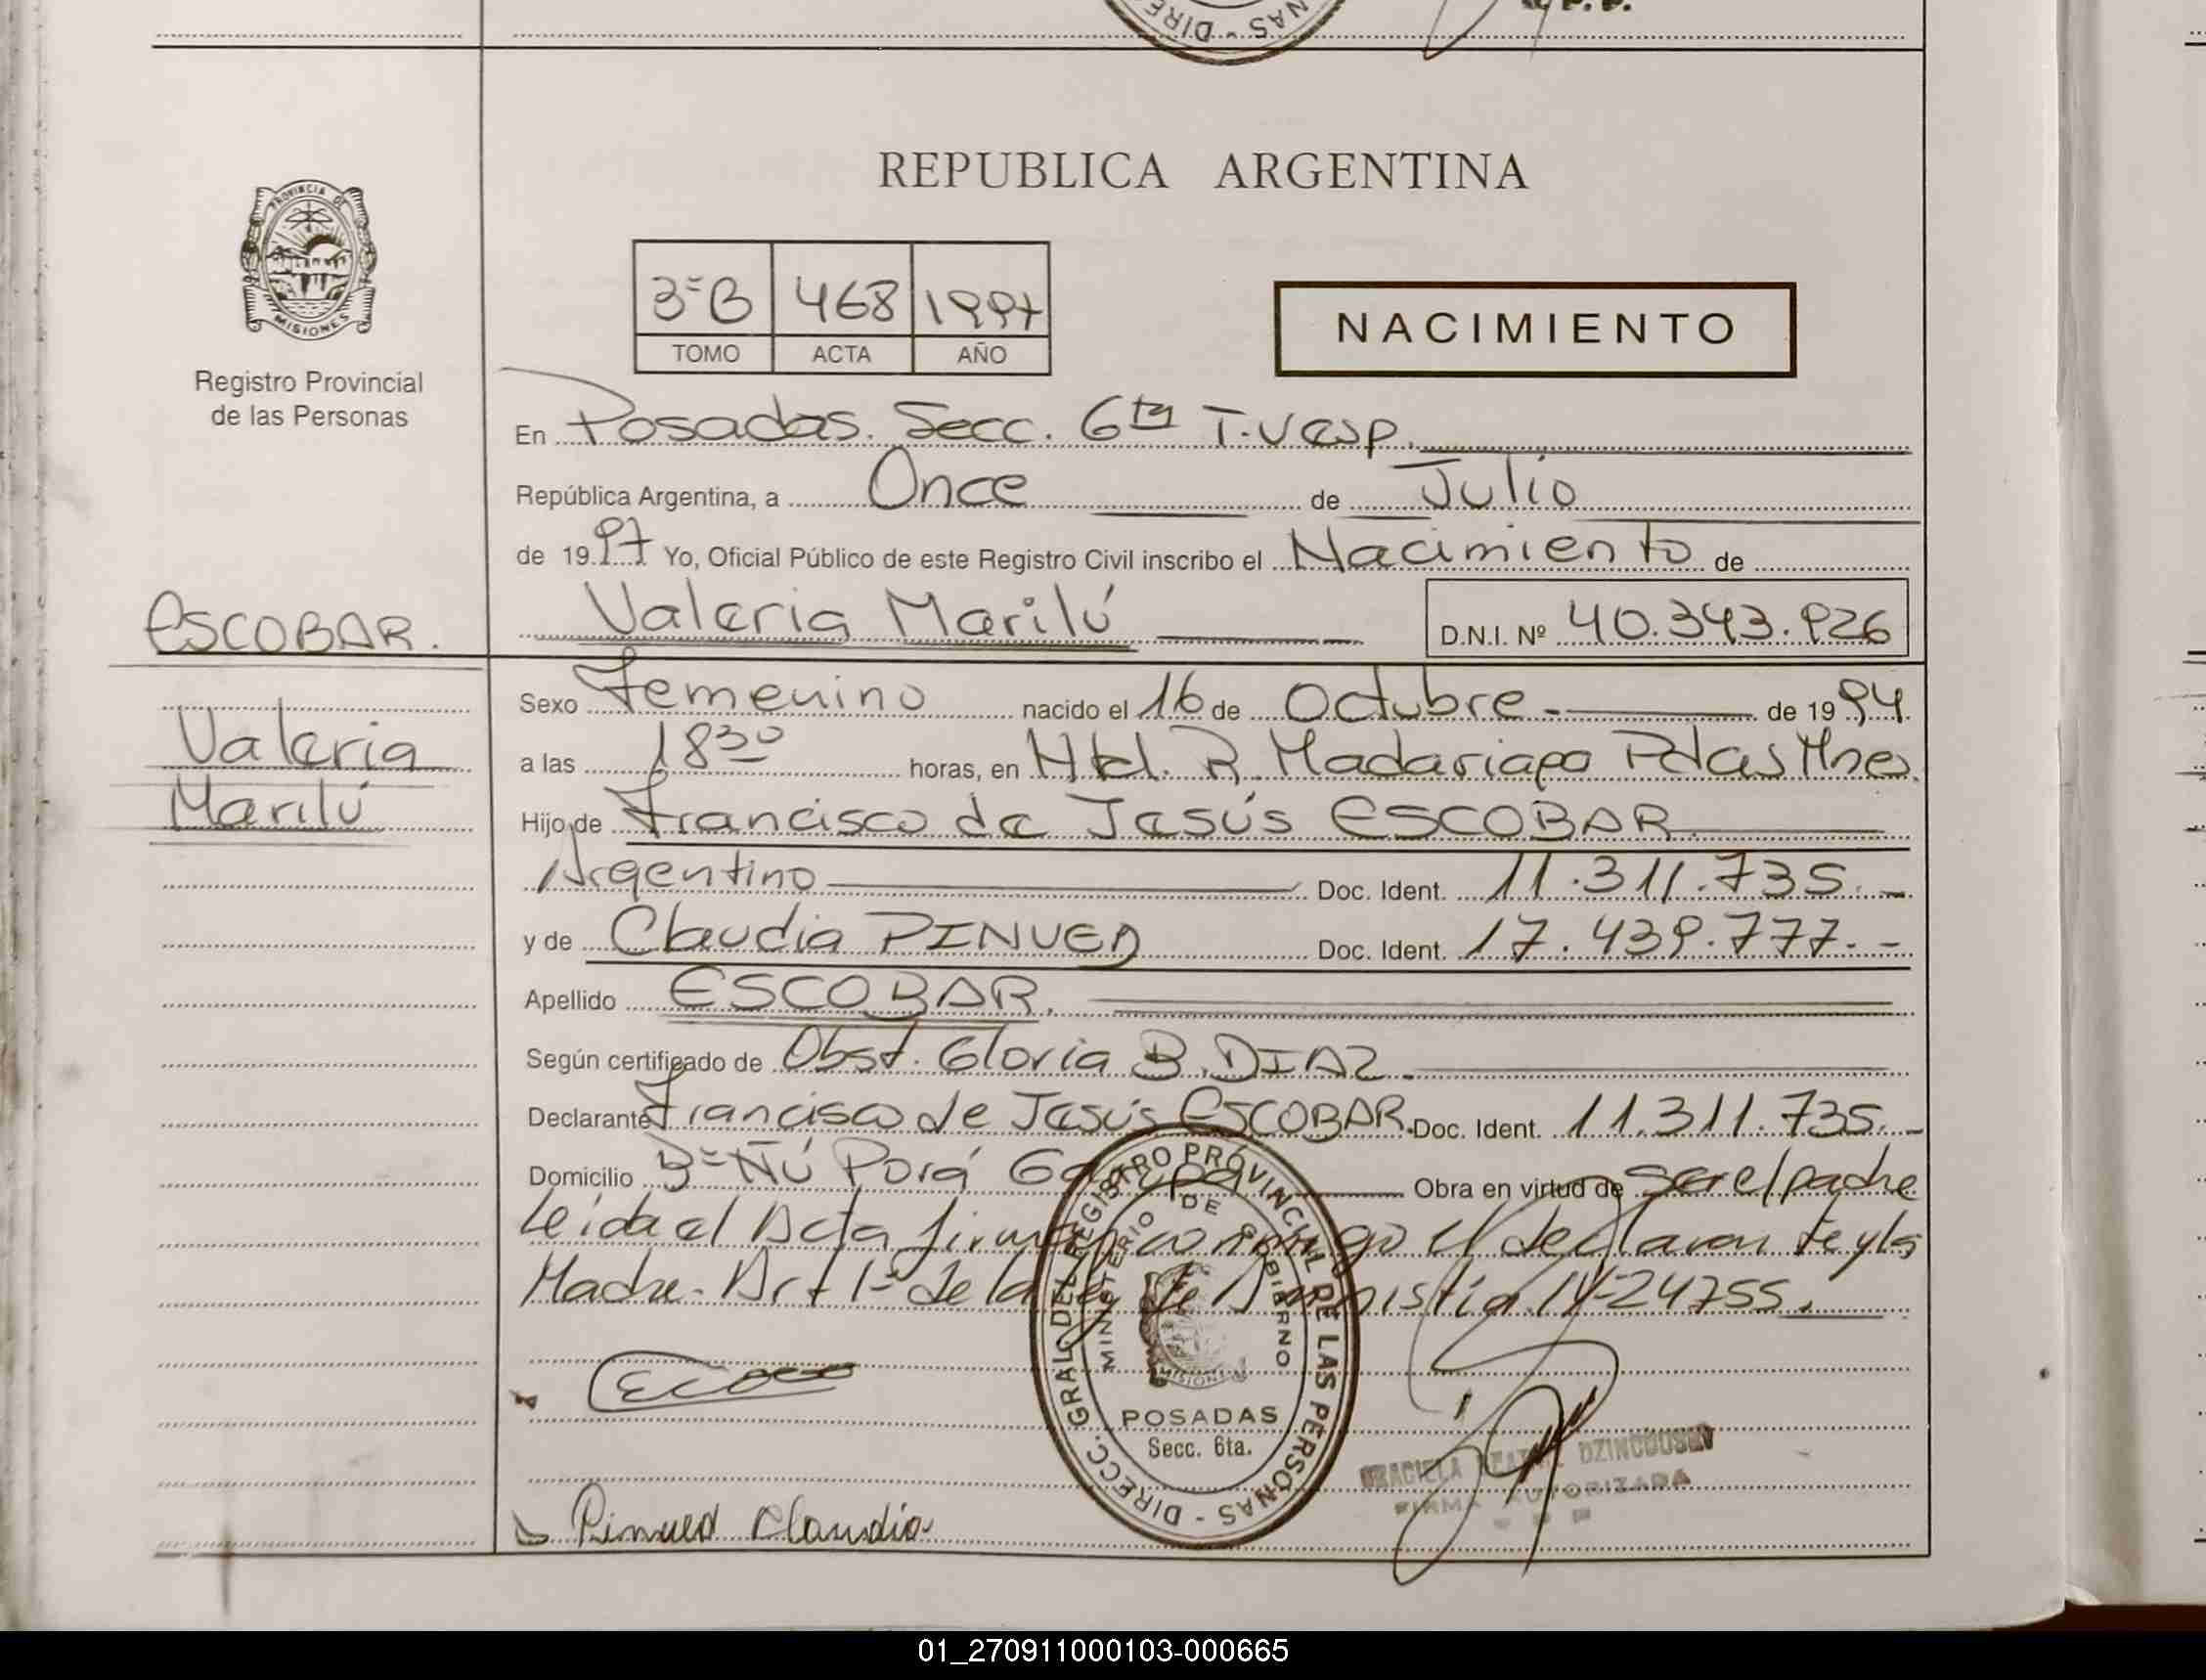 DIRE - NAS
REPUBLICA ARGENTINA
PROVINCIA DE
MISIONES
Registro Provincial
de las Personas
3ºB 468 1997
TOMO ACTA AÑO
NACIMIENTO
En Posadas. Secc. 6ta T. Vesp.
República Argentina, a Once de Julio
de 1997 Yo, Oficial Público de este Registro Civil inscribo el Nacimiento de
ESCOBAR.
Valeria Marilú D.N.I. Nº 40.343.926
Valeria
Marilú
Sexo Femenino nacido el 16 de Octubre - de 1994.
a las 18 30 horas, en Htal. R. Madariaga Pdas Mnes.
Hijo de Francisco de Jesús ESCOBAR
Argentino Doc. Ident. 11.311.735.-
y de Claudia PINUED Doc. Ident. 17.439.777.-
Apellido ESCOBAR.
Según certificado de Obst. Gloria B. DIAZ.
Declarante Francisco de Jesús ESCOBAR. Doc. Ident. 11.311.735.-
Domicilio Bº Ñú Porá Garupá Obra en virtud de ser el padre
Leida el Acta firman conmigo el declarante y la
Madre. Art 1º de la Ley de Amnistía Nº 24755.
DIRECC. GRAL. DEL REGISTRO PROVINCIAL DE LAS PERSONAS -
MINISTERIO DE GOBIERNO
MISIONES
POSADAS
Secc. 6ta.
GRACIELA
FIRMA AUTORIZADA
Pinued Claudia
01_270911000103-000665